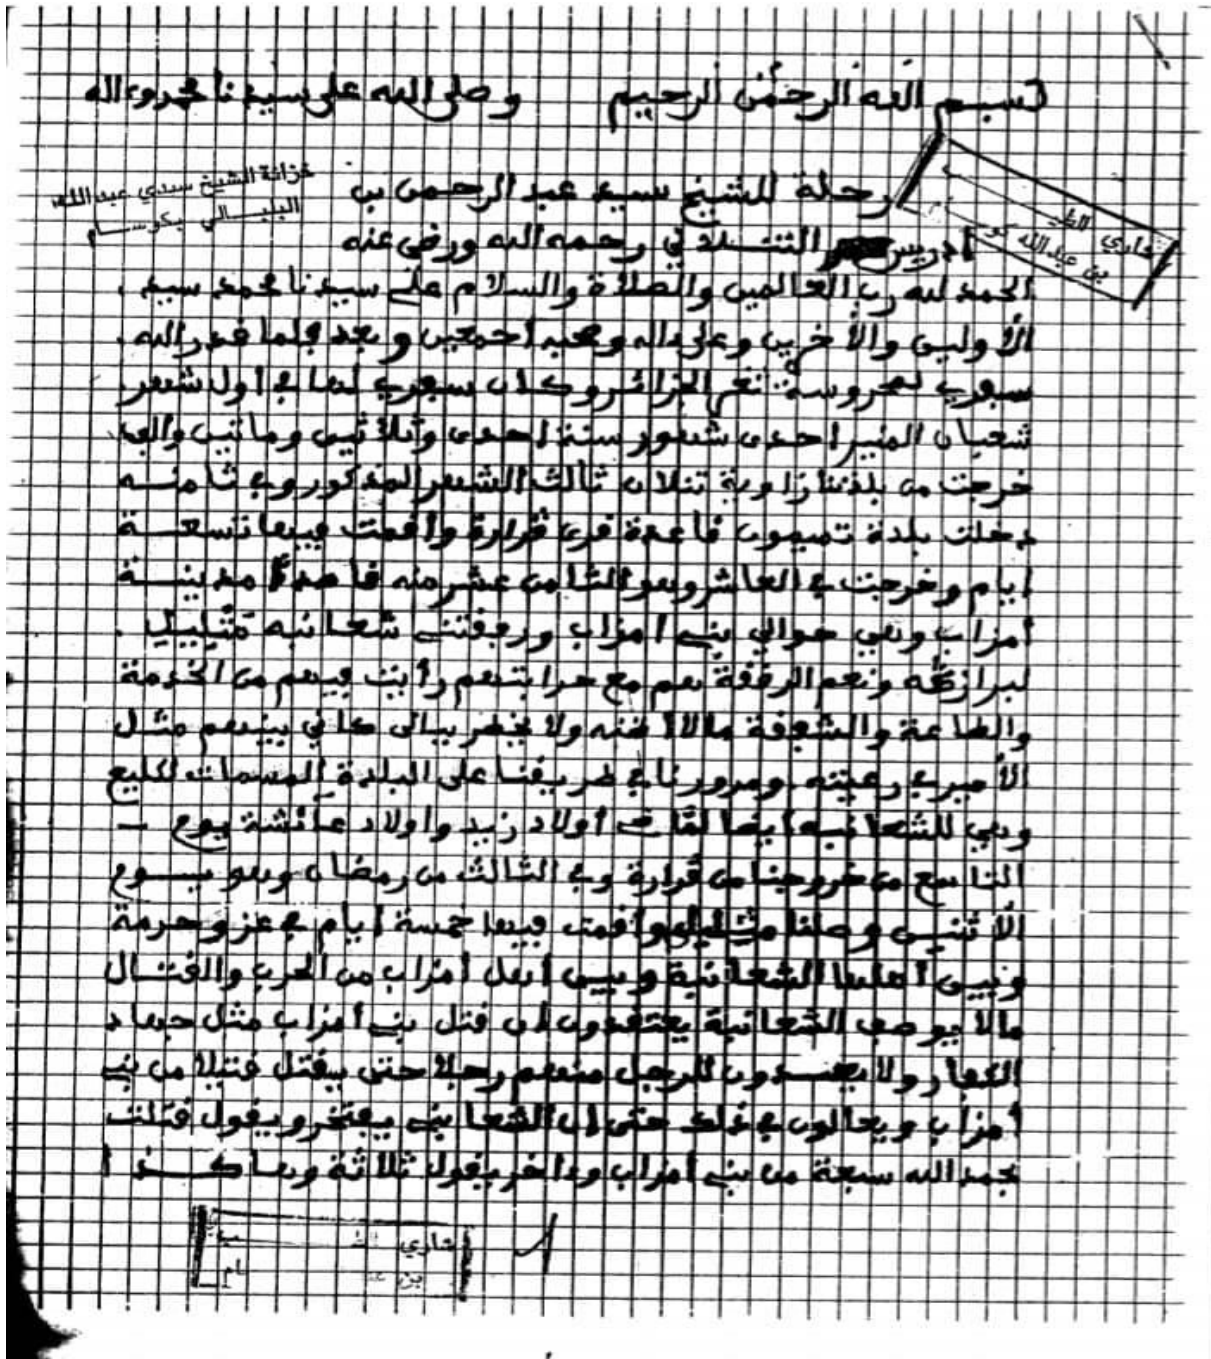 بسم الله الرحمن الرحيم وصلى الله على سيدنا محمد وءاله
خزانة الشيخ سيدي عبد الله
البلبالي بكوسام
رحلة للشيخ سيد عبد الرحمن بن
ادريس التنلاني رحمه الله ورضى عنه
شاري الطيب
بن عبد الله كوسام
الحمد لله رب العالمين والصلاة والسلام على سيدنا محمد سيد
الأولين والأخرين وعلى ءاله وصحبه اجمعين وبعد فلما قدر الله
سفري لمحروسة ثغر الجزائر وكان سفري لها في أول شهر
شعبان المنير احدى شهور سنة احدى وثلاثين ومائتين والف
خرجت من بلدنا زاوية تنلان ثالث الشهر المذكور وفي ثامنه
دخلت بلدة تميمون قاعدة قرى قرارة وأقمت فيها تسعة
ايام وخرجت في العاشر وهو الثامن عشر منه قاصدا مدينة
أمزاب وهي حوالي بني امزاب ورفقتني شعانبه متليلي
لبرازكه ونعم الرفقة هم مع حرابتهم رأيت فيهم من الخدمة
والطاعة والشفقة مالا اظنه ولا يخطر ببالى كاني بينهم مثل
الأمير في رعيته ومرورنا في طريقنا على البلدة المسمات لكليع
وهي للشعانبه ايضا أولاد زيد واولاد عائشة يوم
التاسع من خروجنا من قرارة وفي الثالث من رمضان وهو يوم
الأثنين وصلنا متليلي واقمت فيها خمسة ايام في عز وحرمة
وبين أهلها الشعانبة وبين اهل امزاب من الحرب والقتال
مالا يوصف الشعانبة يعتقدون ان قتل بني أمزاب مثل جهاد
الكفار ولا يعدون للرجل منهم رجلا حتى يقتل قتيلا من بني
أمزاب ويحالون في ذلك حتى ان الشعانبي يفتخر ويقول قتلت
بحمد الله سبعة من بني امزاب وءاخر يقول ثلاثة وهاكذا
شاري
بن
1